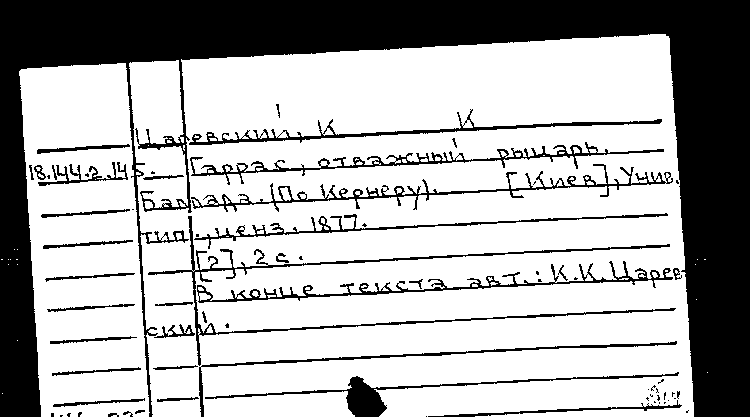 Царевский, К К
18.144.2.145. Гаррас, отважный рыцарь.
Баллада. (По Кернеру). [Киев], Унив.
тип., ценз. 1877.
[2], 2 с.
В конце текста авт.: К.К. Царев-
ский.